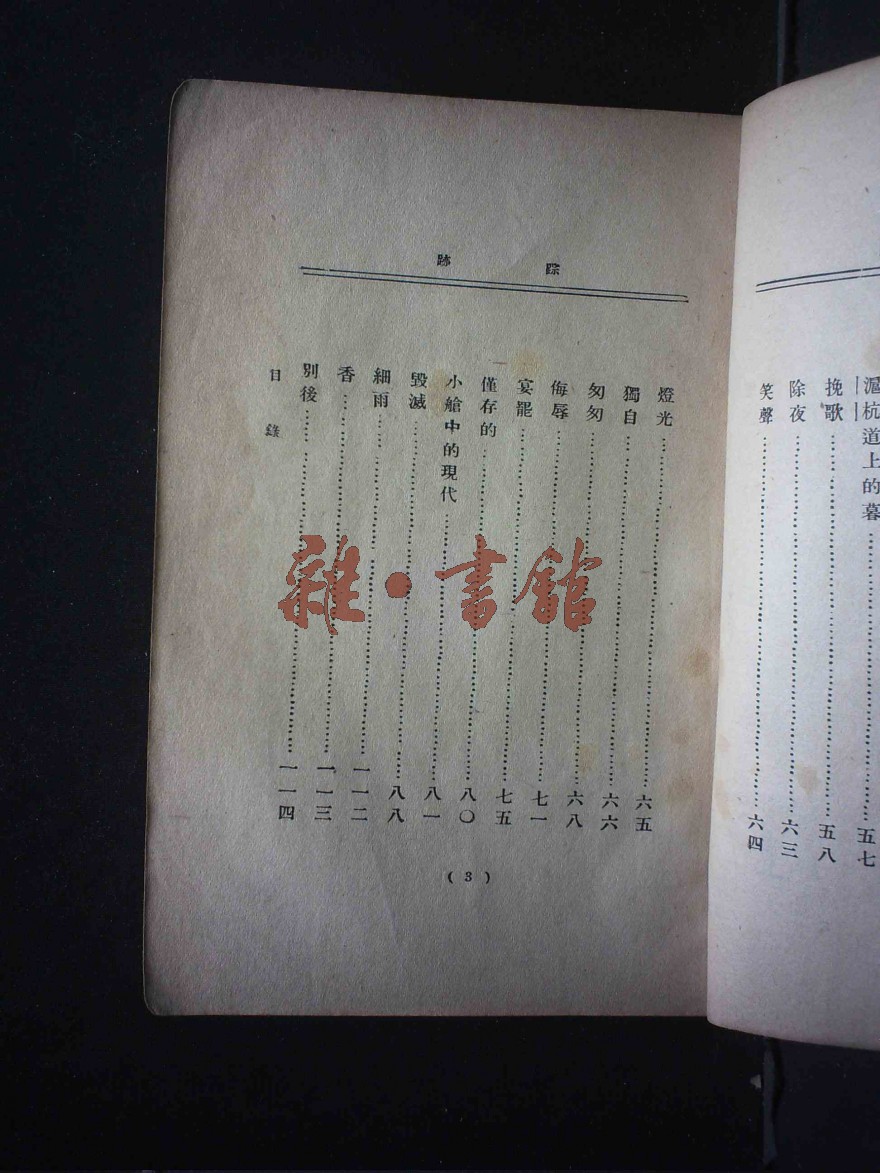 滬杭道上的暮……五七
挽歌……五八
除夜……六三
笑聲……六四
踪跡
燈光……六五
獨自……六六
匆匆……六八
侮辱……七一
宴罷……七五
僅存的……八〇
小艙中的現代……八一
毀滅……八八
細雨……一一二
香……一一三
別後……一一四
目錄
(3)
雜·書館